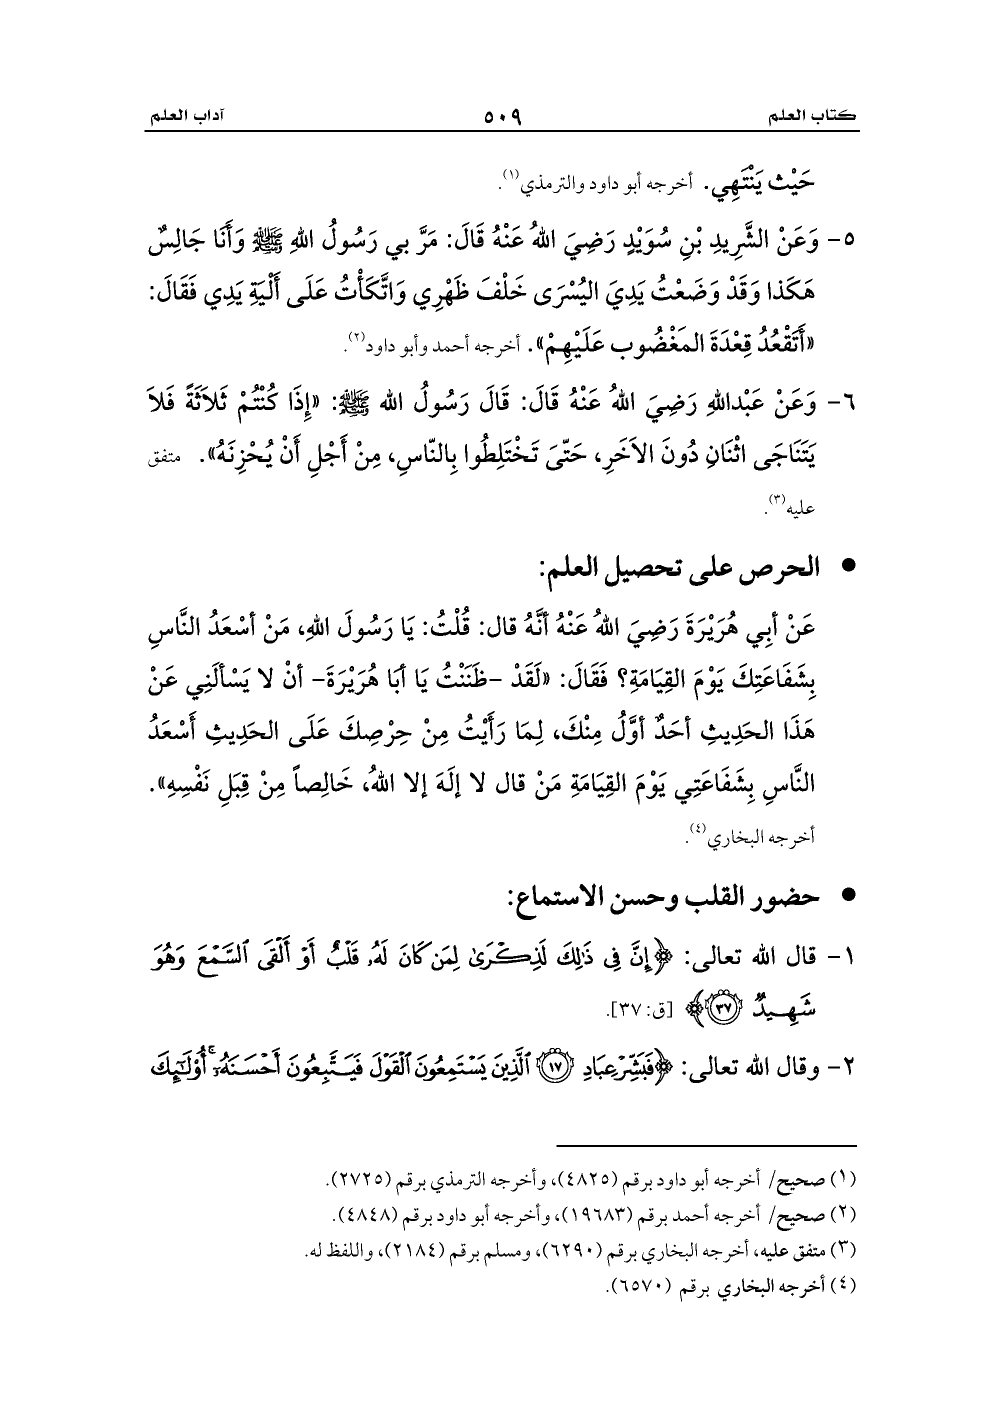 كتاب العلم ٥٠٩ آداب العلم
حَيْث يَنْتَهِي. أخرجه أبو داود والترمذي(١).
٥- وَعَنْ الشَّرِيدِ بْنِ سُوَيْدٍ رَضِيَ اللهُ عَنْهُ قَالَ: مَرَّ بي رَسُولُ اللهِ ﷺ وَأَنَا جَالِسٌ
هَكَذا وَقَدْ وَضَعْتُ يَدِيَ اليُسْرَى خَلْفَ ظَهْرِي وَاتَّكَأْتُ عَلَى أَلْيَةِ يَدِي فَقَالَ:
«أَتَقْعُدُ قِعْدَةَ المَغْضُوب عَلَيْهِمْ». أخرجه أحمد وأبو داود(٢).
٦- وَعَنْ عَبْدالله رَضِيَ اللهُ عَنْهُ قَالَ: قَالَ رَسُولُ الله ﷺ: «إِذَا كُنْتُمْ ثَلاَثَةً فَلاَ
يَتَنَاجَى اثْنَانِ دُونَ الآخَرِ، حَتَّىَ تَخْتَلِطُوا بِالنّاسِ، مِنْ أَجْلِ أَنْ يُحْزِنَهُ». متفق
عليه(٣).
● الحرص على تحصيل العلم:
عَنْ أبِي هُرَيْرَةَ رَضِيَ اللهُ عَنْهُ أنَّهُ قال: قُلْتُ: يَا رَسُولَ اللهِ، مَنْ أسْعَدُ النَّاسِ
بِشَفَاعَتِكَ يَوْمَ القِيَامَةِ؟ فَقَالَ: «لَقَدْ -ظَنَنْتُ يَا أبَا هُرَيْرَةَ- أنْ لا يَسْألَنِي عَنْ
هَذَا الحَدِيثِ أحَدٌ أوَّلُ مِنْكَ، لِمَا رَأيْتُ مِنْ حِرْصِكَ عَلَى الحَدِيثِ أسْعَدُ
النَّاسِ بِشَفَاعَتِي يَوْمَ القِيَامَةِ مَنْ قال لا إلَهَ إلا اللهُ، خَالِصاً مِنْ قِبَلِ نَفْسِهِ».
أخرجه البخاري(٤).
● حضور القلب وحسن الاستماع:
١- قال الله تعالى: ﴿إِنَّ فِي ذَٰلِكَ لَذِكْرَىٰ لِمَن كَانَ لَهُۥ قَلْبٌ أَوْ أَلْقَى ٱلسَّمْعَ وَهُوَ
شَهِيدٌ ٣٧﴾ [ق: ٣٧].
٢- وقال الله تعالى: ﴿فَبَشِّرْ عِبَادِ ١٧ ٱلَّذِينَ يَسْتَمِعُونَ ٱلْقَوْلَ فَيَتَّبِعُونَ أَحْسَنَهُۥٓ ۚ أُوْلَٰٓئِكَ
(١) صحيح/ أخرجه أبو داود برقم (٤٨٢٥)، وأخرجه الترمذي برقم (٢٧٢٥).
(٢) صحيح/ أخرجه أحمد برقم (١٩٦٨٣)، وأخرجه أبو داود برقم (٤٨٤٨).
(٣) متفق عليه، أخرجه البخاري برقم (٦٢٩٠)، ومسلم برقم (٢١٨٤)، واللفظ له.
(٤) أخرجه البخاري برقم (٦٥٧٠).